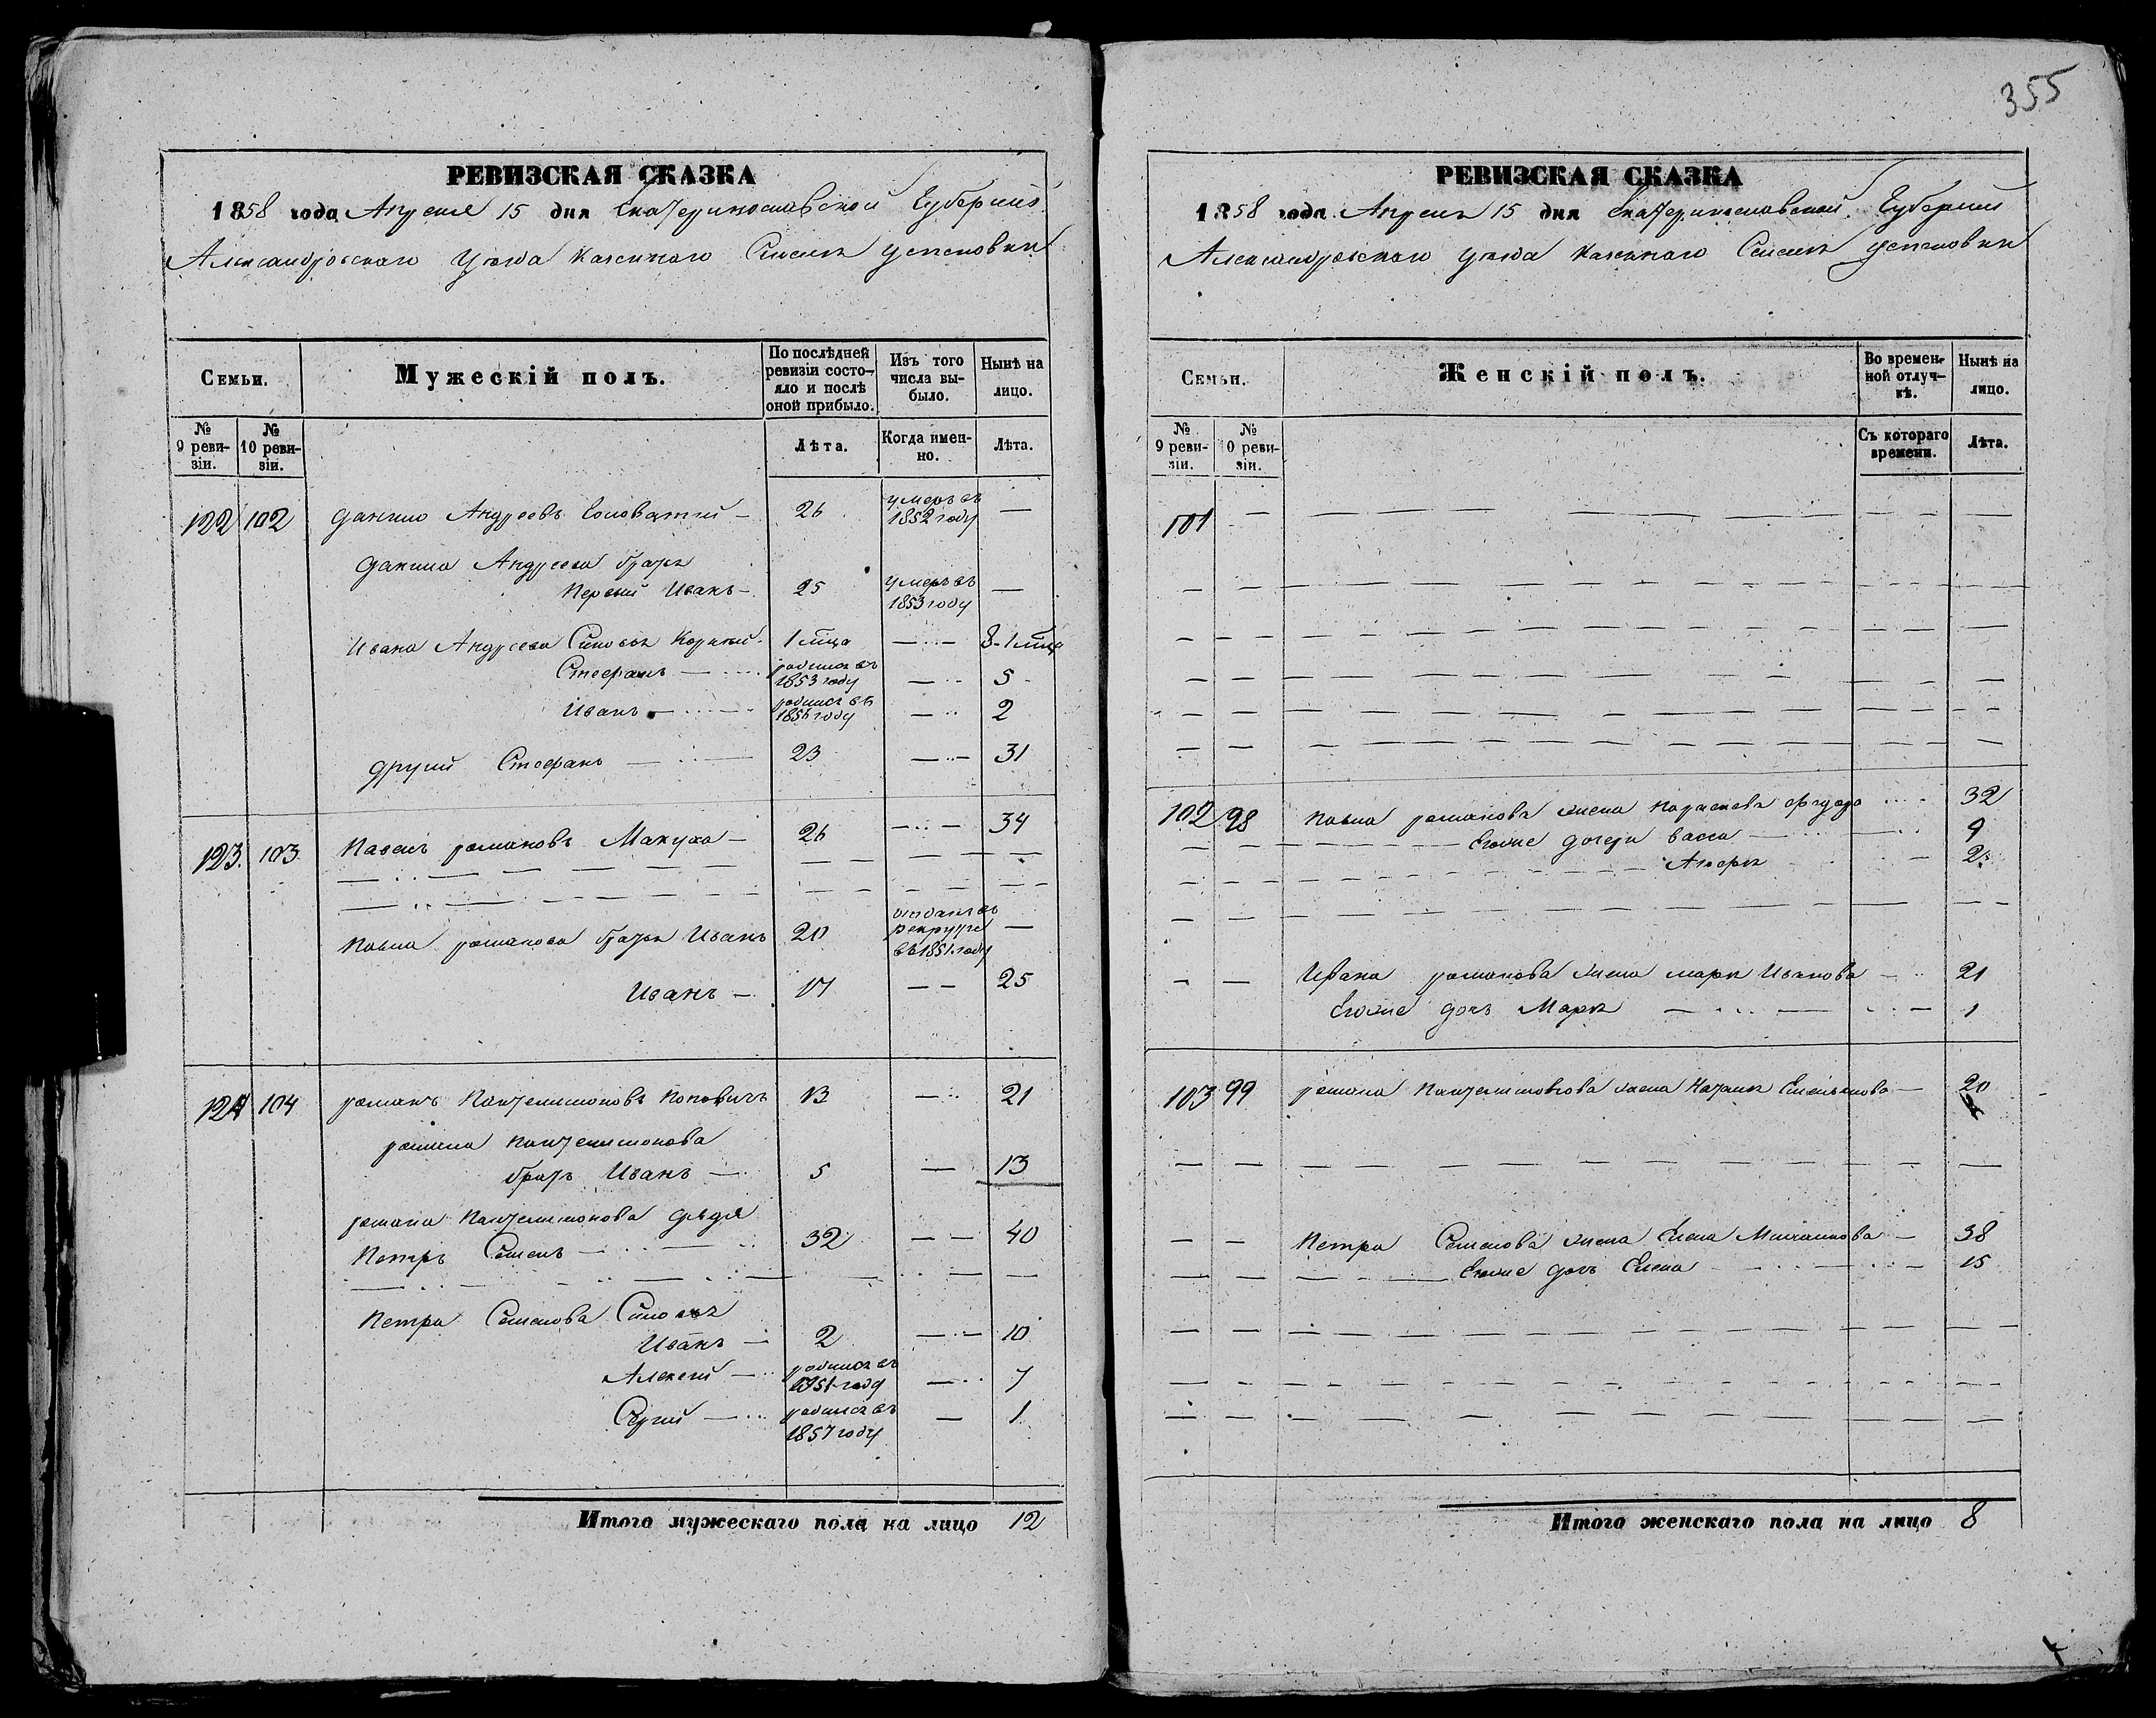 355
РЕВИЗСКАЯ СКАЗКА
1858 года Апреля 15 дня Екатеринославской Губернии
Александровского уезда казенного Селения
Семьи.
Мужескій полъ.
По послѣдней ревизіи состояло и послѣ оной прибыло.
Изъ того числа выбыло.
Нынѣ на лицо.
№ 9 ревизіи.
№ 10 ревизіи.
Лѣта.
Когда именно.
Лѣта.
122 102 Данило Андреевъ 26 умеръ въ 1852 году —
Данила Андреева братья
Первый Иванъ — 25 умеръ въ 1853 году —
Ивана Андреева Сыновья Корний 1 мца — 8-1 мца
Стефанъ — родился въ 1853 году — 5
Иванъ — родился въ 1856 году — 2
другий Стефанъ — 23 — 31
123 103 Павелъ романовъ Макуха — 26 — 34
Павла романова братья Иванъ 20 отданъ въ рекруты въ 1851 году —
Иванъ — 17 — 25
124 104 романъ Пантелимоновъ Поповичъ 13 — 21
романа Пантелимонова
братъ Иванъ — 5 — 13
романа Пантелимонова дядя
Петръ Семенъ — 32 — 40
Петра Семенова Сыновья
Иванъ — 2 — 10
Алексий — родился въ 1851 году — 7
Сергий — родился въ 1857 году — 1
Итого мужескаго пола на лицо 12
РЕВИЗСКАЯ СКАЗКА
1858 года Апреля 15 дня Екатеринославской Губернии
Александровского уезда казенного Селения
Семьи.
Женскій полъ.
Во временной отлучкѣ.
Нынѣ на лицо.
№ 9 ревизіи.
№ 0 ревизіи.
Съ котораго времени.
Лѣта.
101
102 98 Павла романова жена 32
Егоже дочери Васса — 9
2
Ивана романова жена Марья Иванова — 21
Егоже дочь Марья — 1
103 99 романа Пантелимонова жена Емельянова — 20
Петра Семенова жена Елена — 38
Егоже дочь Елена — 15
Итого женскаго пола на лицо 8